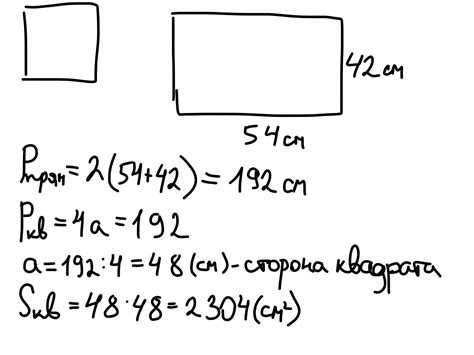 42 см
54 см
Pпрям = 2(54+42) = 192 см
Pкв = 4a = 192
a = 192:4 = 48 (см) - сторона квадрата
Sкв = 48·48 = 2304 (см²)